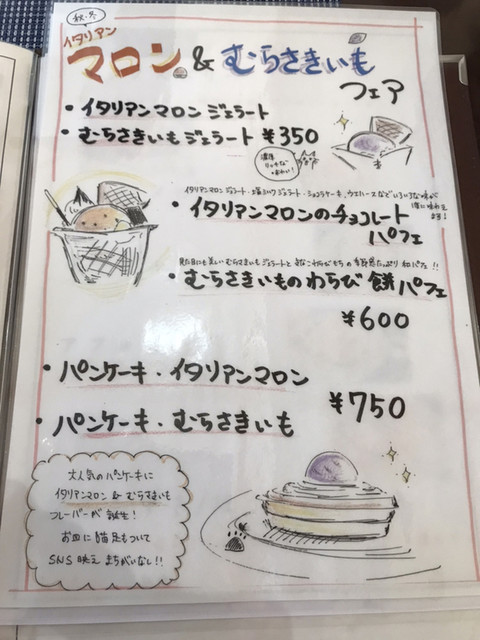 秋・冬
イタリアン
マロン & むらさきいも
フェア
・イタリアンマロン ジェラート
・むらさきいもジェラート ¥350
濃厚
リッチな
味わい!
イタリアンマロンジェラート・土佐ミルクジェラート・ショコラケーキ、ウエハースなどいろいろな味が
・イタリアンマロンのチョコレート
パフェ
見た目にも美しいむらさきいもジェラートときなこわらびもちの季節感たっぷり和パフェ!!
・むらさきいものわらび餅パフェ
¥600
・パンケーキ・イタリアンマロン
・パンケーキ・むらさきいも
¥750
大人気のパンケーキに
イタリアンマロン & むらさきいも
フレーバーが誕生!
お皿に猫足もついて
SNS映えまちがいなし!!